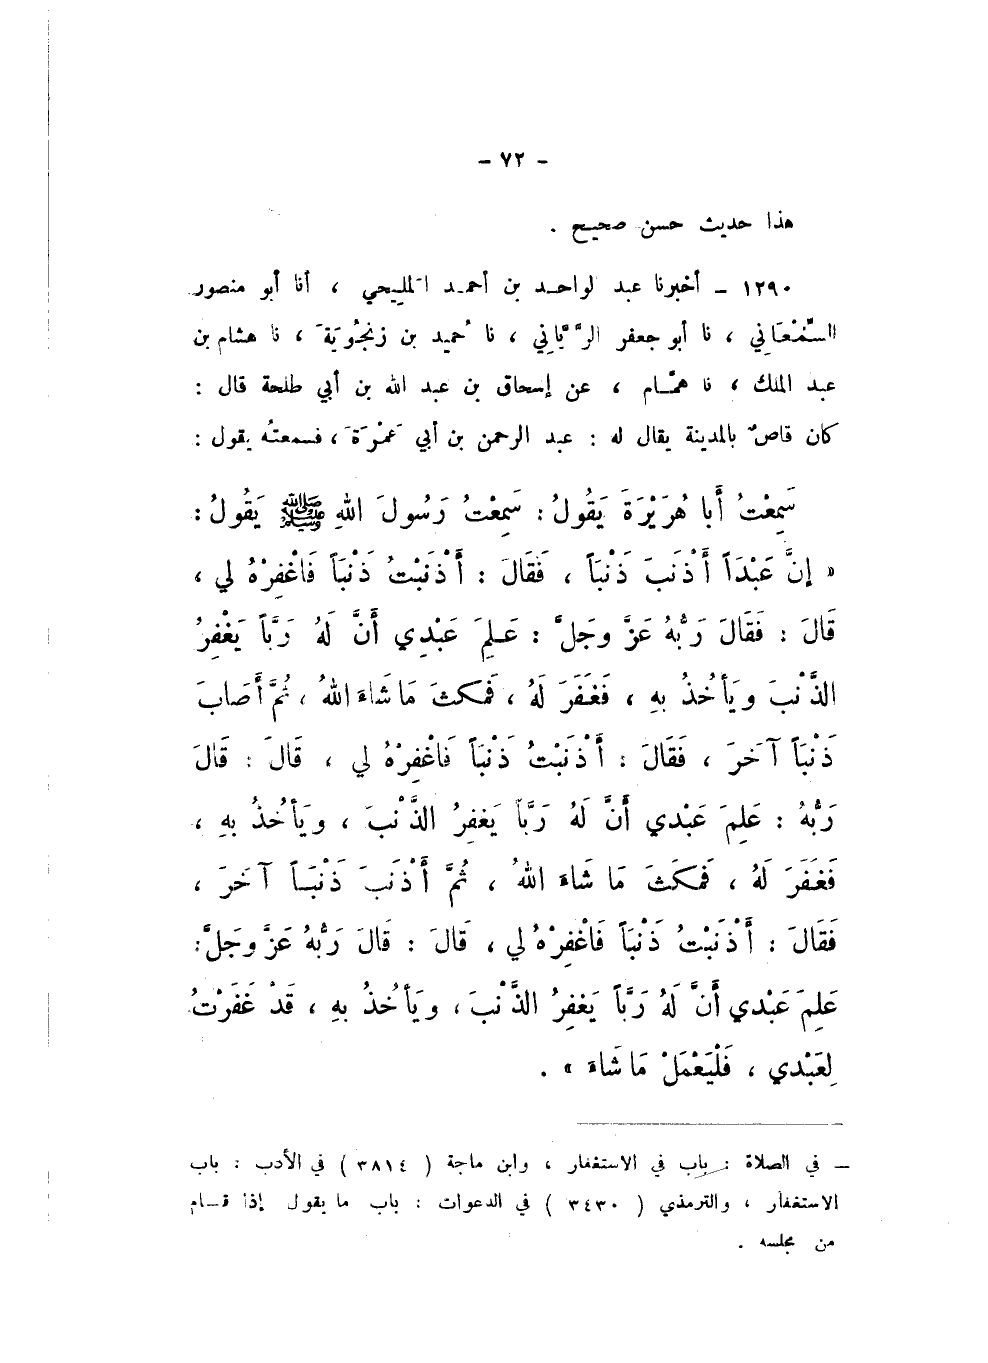 - ٧٢ -
هذا حديث حسن صحيح .
١٢٩٠ - أخبرنا عبد لواحد بن أحمد المليحي ، أنا أبو منصور
السَّمْعَاني ، نا أبو جعفر الرَّيَّاني ، نا حُميد بن زنجُويَة ، نا هشام بن
عبد الملك ، نا همَّام ، عن إسحاق بن عبد الله بن أبي طلحة قال :
كان قاصٌ بالمدينة يقال له : عبد الرحمن بن أبي عَمْرَة ، فسمعتُه يقول :
سَمِعْتُ أَبا هُرَيْرَةَ يَقُولُ : سَمِعْتُ رَسُولَ اللهِ ﷺ يَقُولُ :
« إنَّ عَبْدَاً أَذْنَبَ ذَنْبَاً ، فَقَالَ : أَذْنَبْتُ ذَنْبَاً فَاغْفِرْهُ لي ،
قَالَ : فَقَالَ رَبُّهُ عَزَّ وجَلَّ : عَلِمَ عَبْدِي أَنَّ لَهُ رَبَّاً يَغْفِرُ
الذَّنْبَ ويَأخُذُ بِهِ ، فَغَفَرَ لَهُ ، فَمكثَ مَا شَاءَ اللهُ ، ثُمَّ أَصَابَ
ذَنْبَاً آخَرَ ، فَقَالَ : أَذْنَبْتُ ذَنْبَاً فَاغْفِرْهُ لي ، قَالَ : قَالَ
رَبُّهُ : عَلِمَ عَبْدي أَنَّ لَهُ رَبَّاً يَغفِرُ الذَّنْبَ ، ويَأخُذُ بهِ ،
فَغَفَرَ لَهُ ، فَمكَثَ مَا شَاءَ اللهُ ، ثُمَّ أَذْنَبَ ذَنْبَاً آخَرَ ،
فَقَالَ : أَذْنَبْتُ ذَنْبَاً فَاغْفِرْهُ لي ، قَالَ : قَالَ رَبُّهُ عَزَّ وجَلَّ :
عَلِمَ عَبْدي أَنَّ لَهُ رَبَّاً يَغفِرُ الذَّنْبَ ، ويَأخُذُ بهِ ، قَدْ غَفَرْتُ
لِعَبْدي ، فَلْيَعْمَلْ مَا شَاءَ » .
— في الصلاة : باب في الاستغفار ، وابن ماجة ( ٣٨١٤ ) في الأدب : باب
الاستغفار ، والترمذي ( ٣٤٣٠ ) في الدعوات : باب ما يقول إذا قـام
من مجلسه .